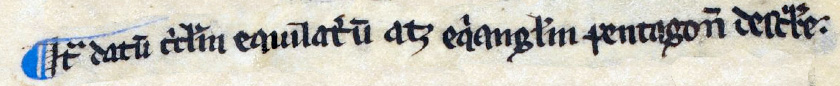 Intͣ datū circl̄m equilat̄ū atqꝫ eqͥangl̄m pentagon̄ descͥbe.